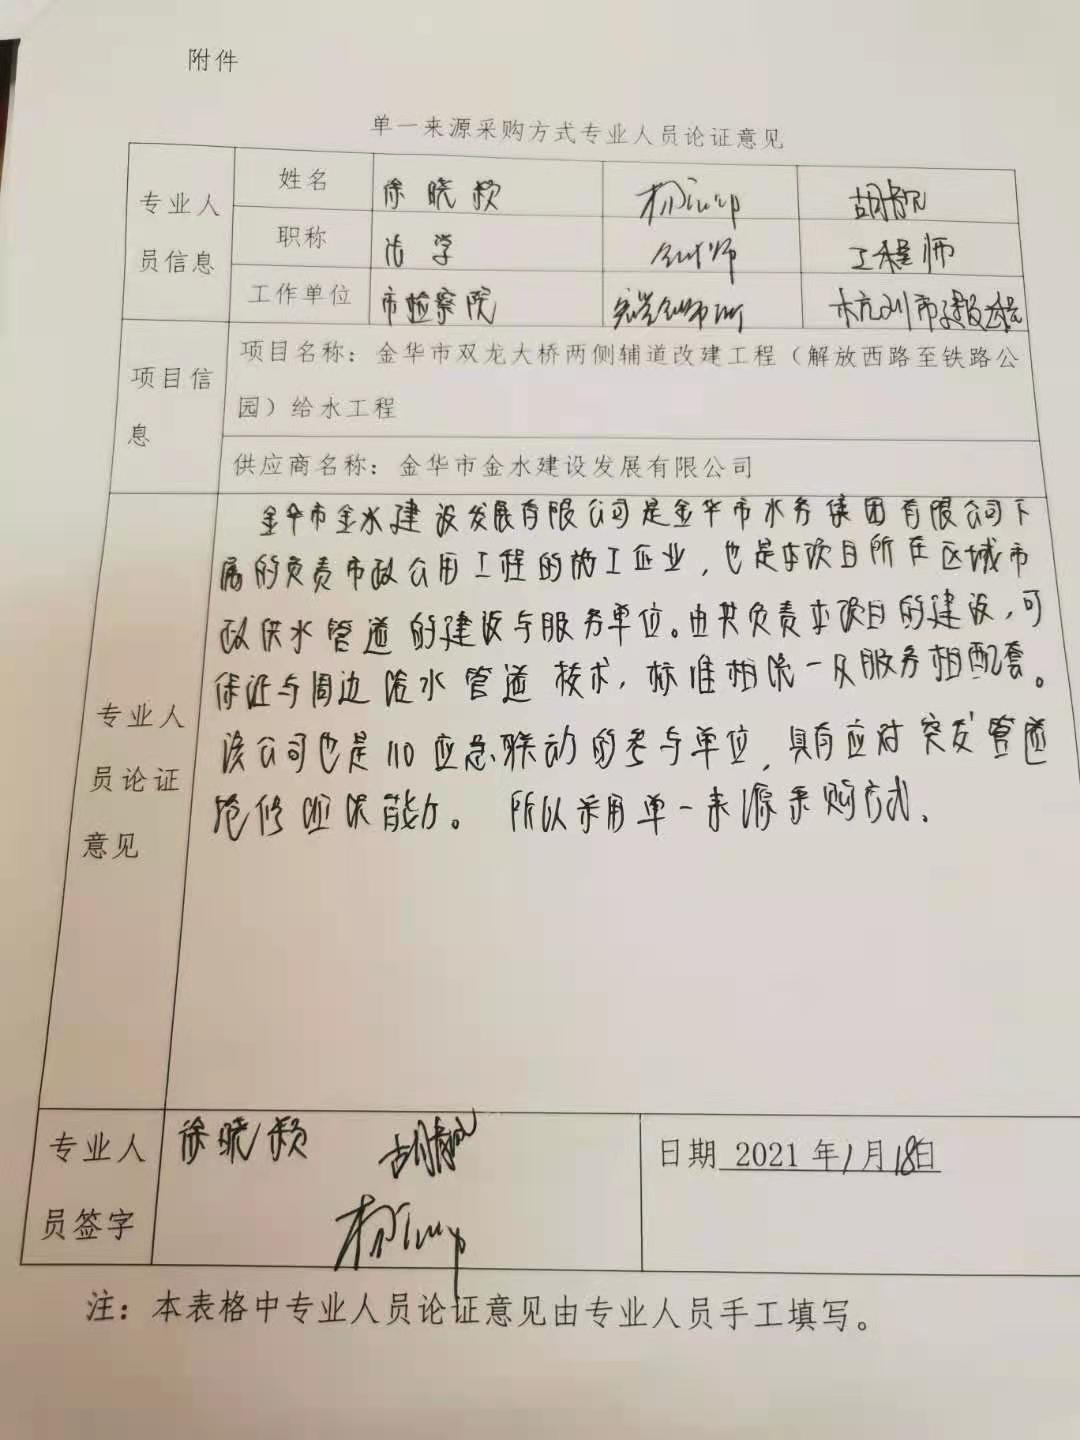 附件
单一来源采购方式专业人员论证意见
专业人员信息
姓名 徐晓颖 胡靓
职称 法学 律师 工程师
工作单位 市检察院 律师所 杭州市建设工程
项目信息
项目名称：金华市双龙大桥两侧辅道改建工程（解放西路至铁路公
园）给水工程
供应商名称：金华市金水建设发展有限公司
专业人员论证意见
金华市金水建设发展有限公司是金华市水务集团有限公司下
属的负责市政公用工程的施工企业，也是本项目所在区域市
政供水管道的建设与服务单位。由其负责本项目的建设，可
保证与周边给水管道技术，标准相统一及服务相配套。
该公司也是110应急联动的参与单位，具有应对突发管道
抢修 能力。所以采用单一来源采购方式.
专业人员签字
徐晓颖 胡靓
日期 2021年1月18日
注：本表格中专业人员论证意见由专业人员手工填写。